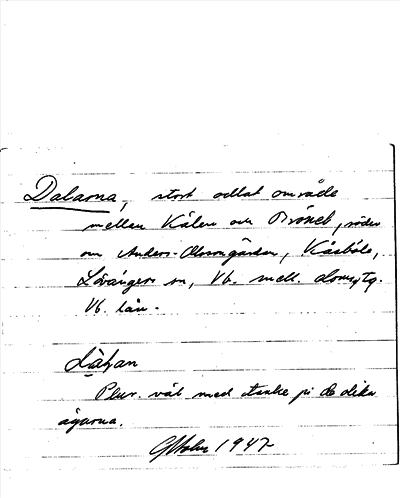 Dalarna, stort odlat område
mellan Kålen och Brönet, söder
om Anders-Olsorsgården, Kåsböle,
Lövångers sn, Vb. mell. doms. tg.
Vb. län.
Låḥan
Plur. väl med tanke på de olika
ägorna.
GHolm 1947